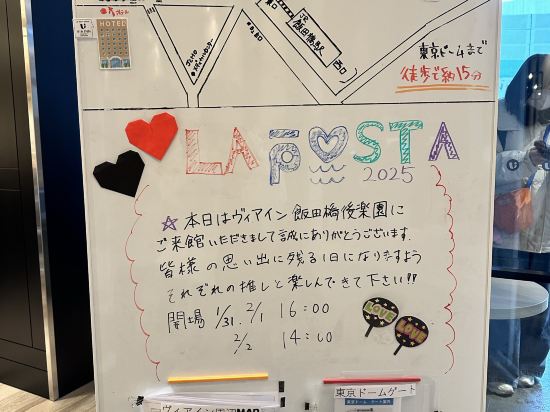 HOTEL
JR
飯田橋駅
西口
東京ドームまで
徒歩で約15分
LAPOSTA
2025
☆本日はヴィアイン飯田橋後楽園に
ご来館いただきまして誠にありがとうございます。
皆様の思い出に残る1日になりますよう
それぞれの推しと楽しんできて下さい!!
開場 1/31. 2/1 16:00
2/2 14:00
LOVE
LOVE
東京ドームゲート